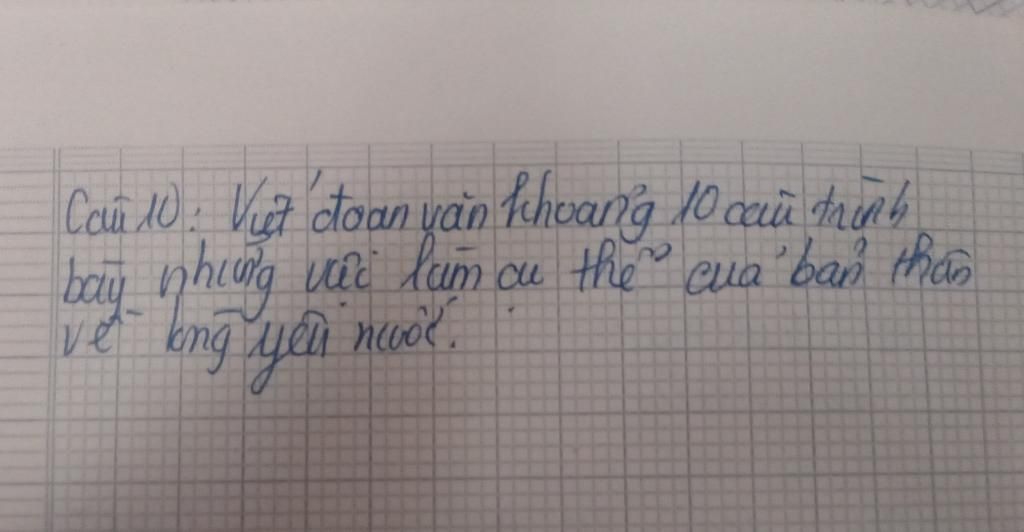 Câu 10: Viết đoạn văn khoảng 10 câu trình
bày những việc làm cụ thể của bản thân
về lòng yêu nước.